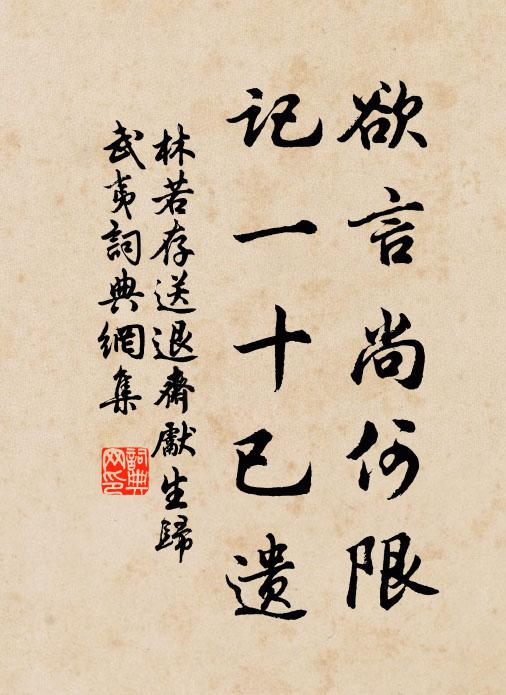 欲言尚何限
记一十已遗
林若存送退斋献生歸
武夷詞典網集
詞典网印